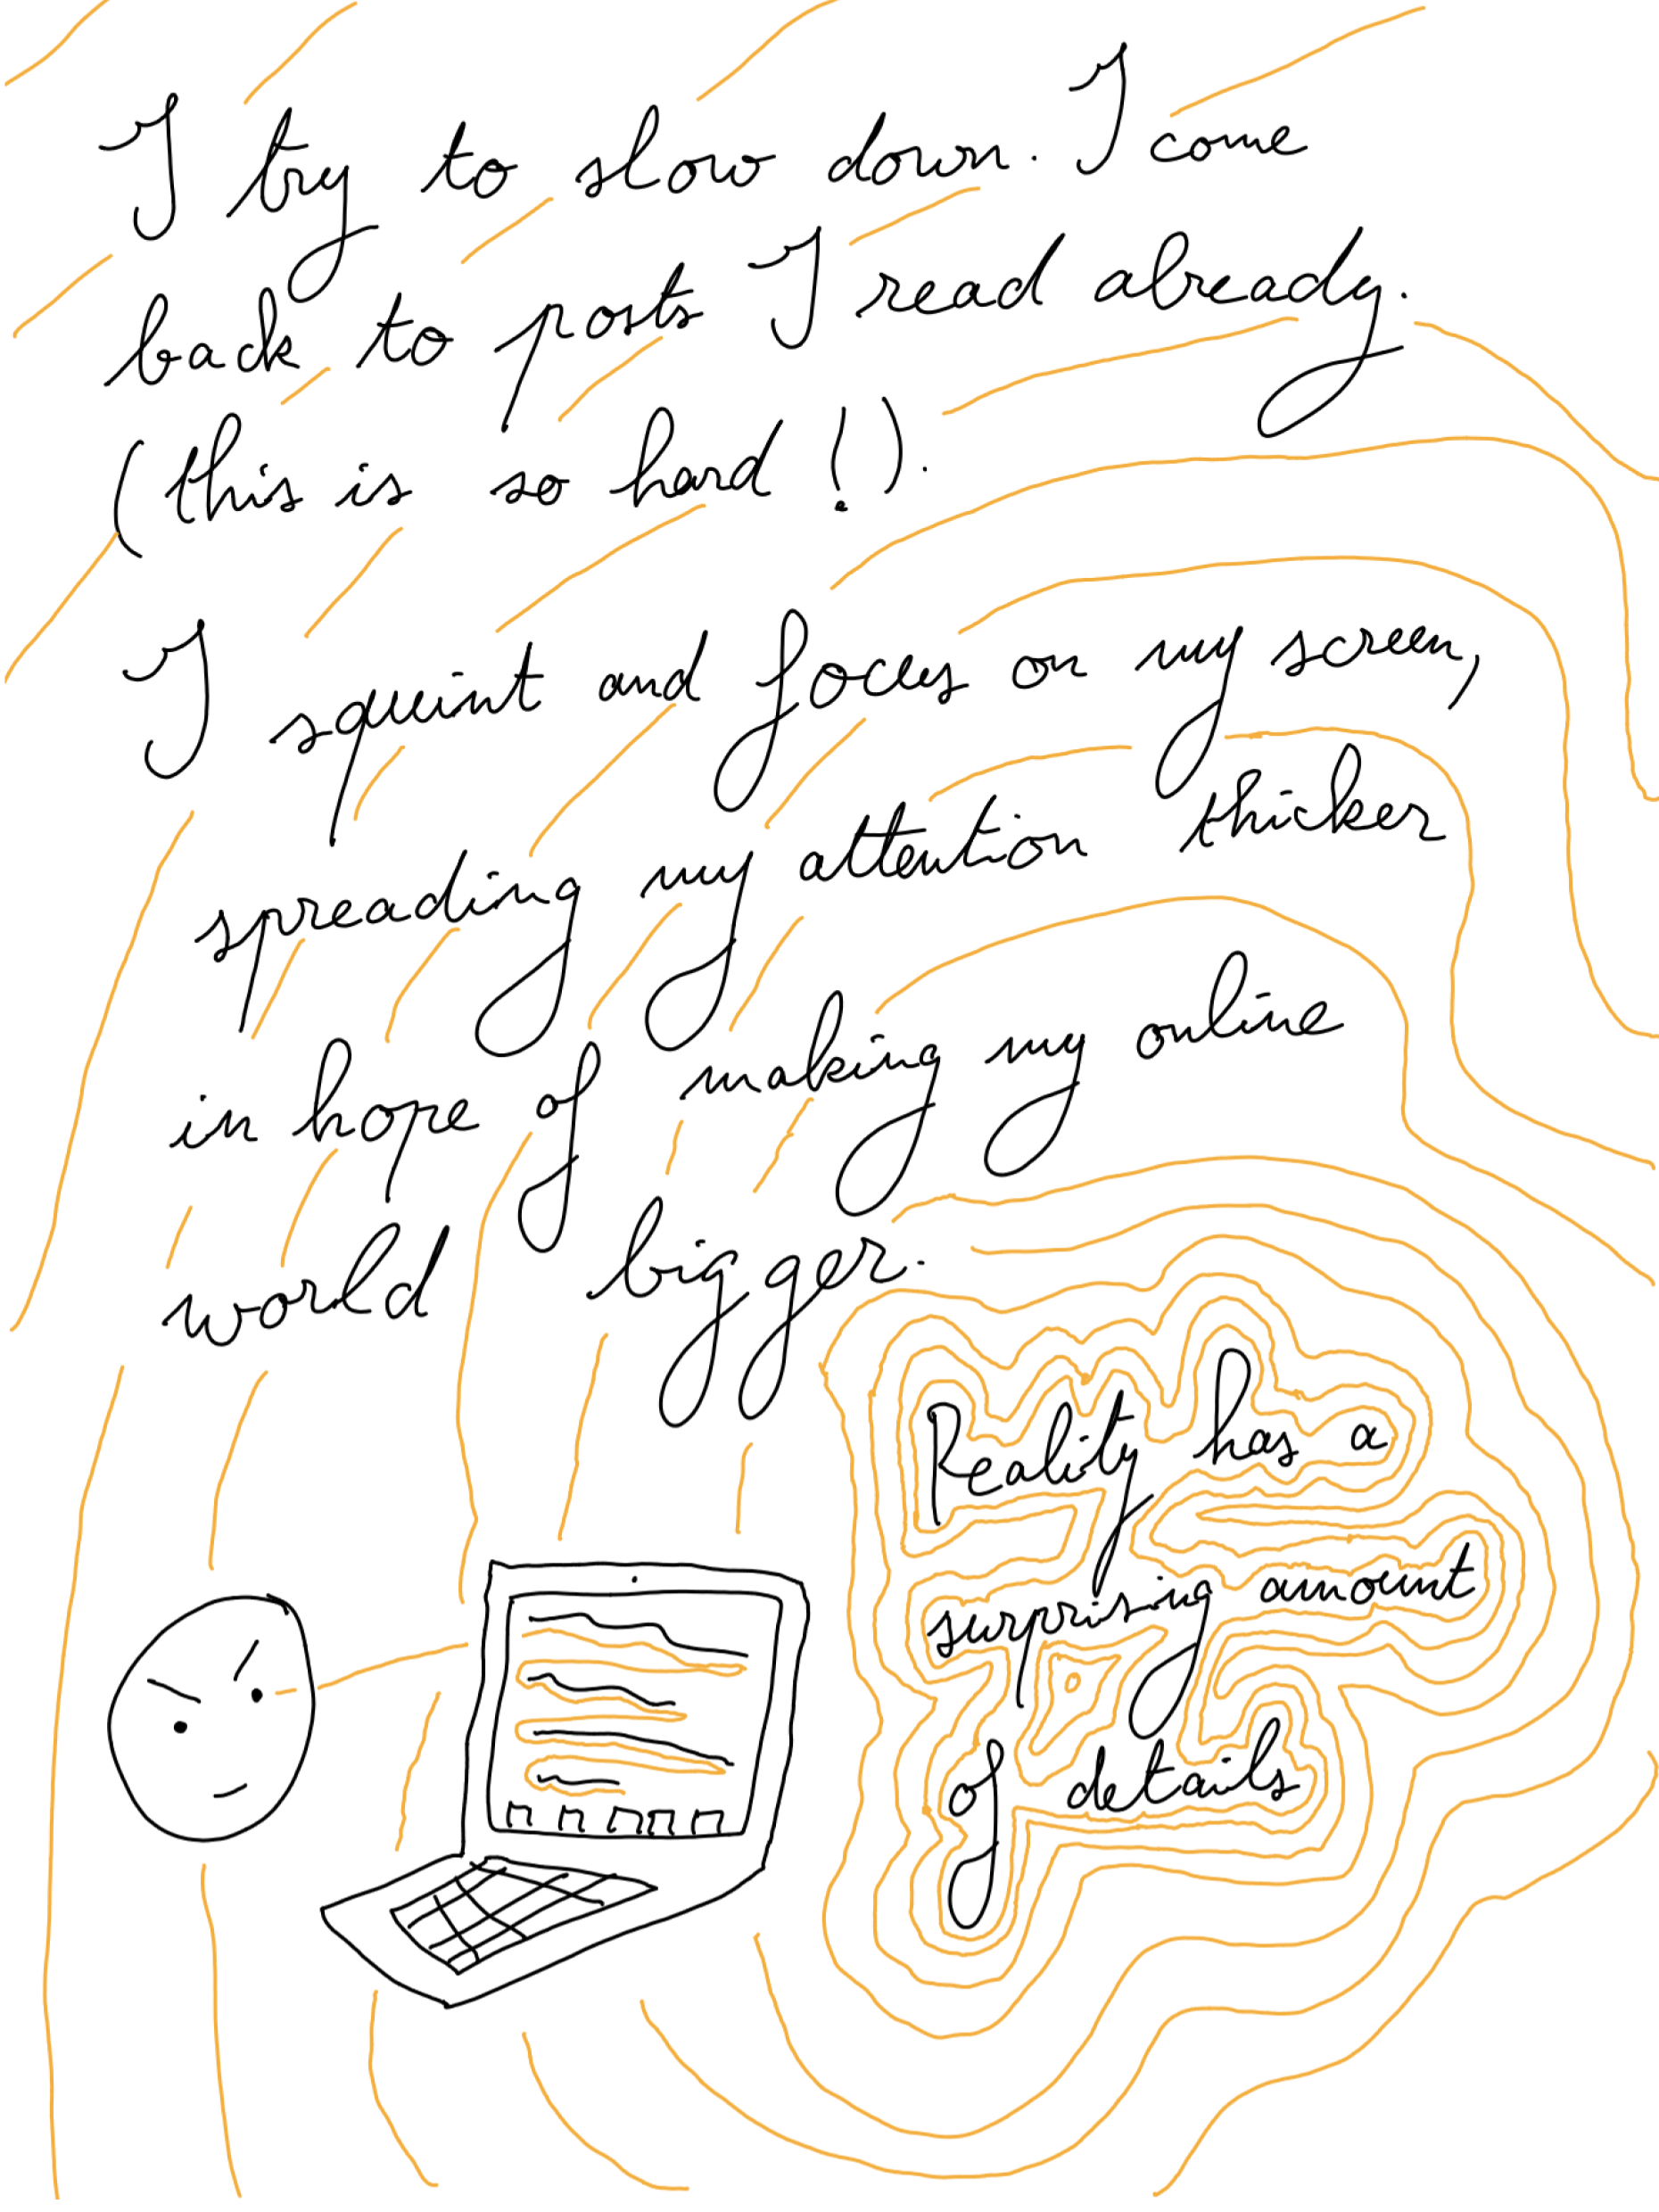 I try to slow down. I come
back to posts I read already.
(this is so hard!).
I squint and focus on my screen,
spreading my attention thicker
in hope of making my online
world bigger.
Reality has a
surprising amount
of details